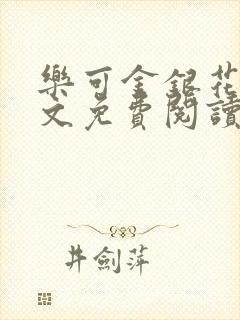 樂可金銀花
文免費閱讀
井劍萍